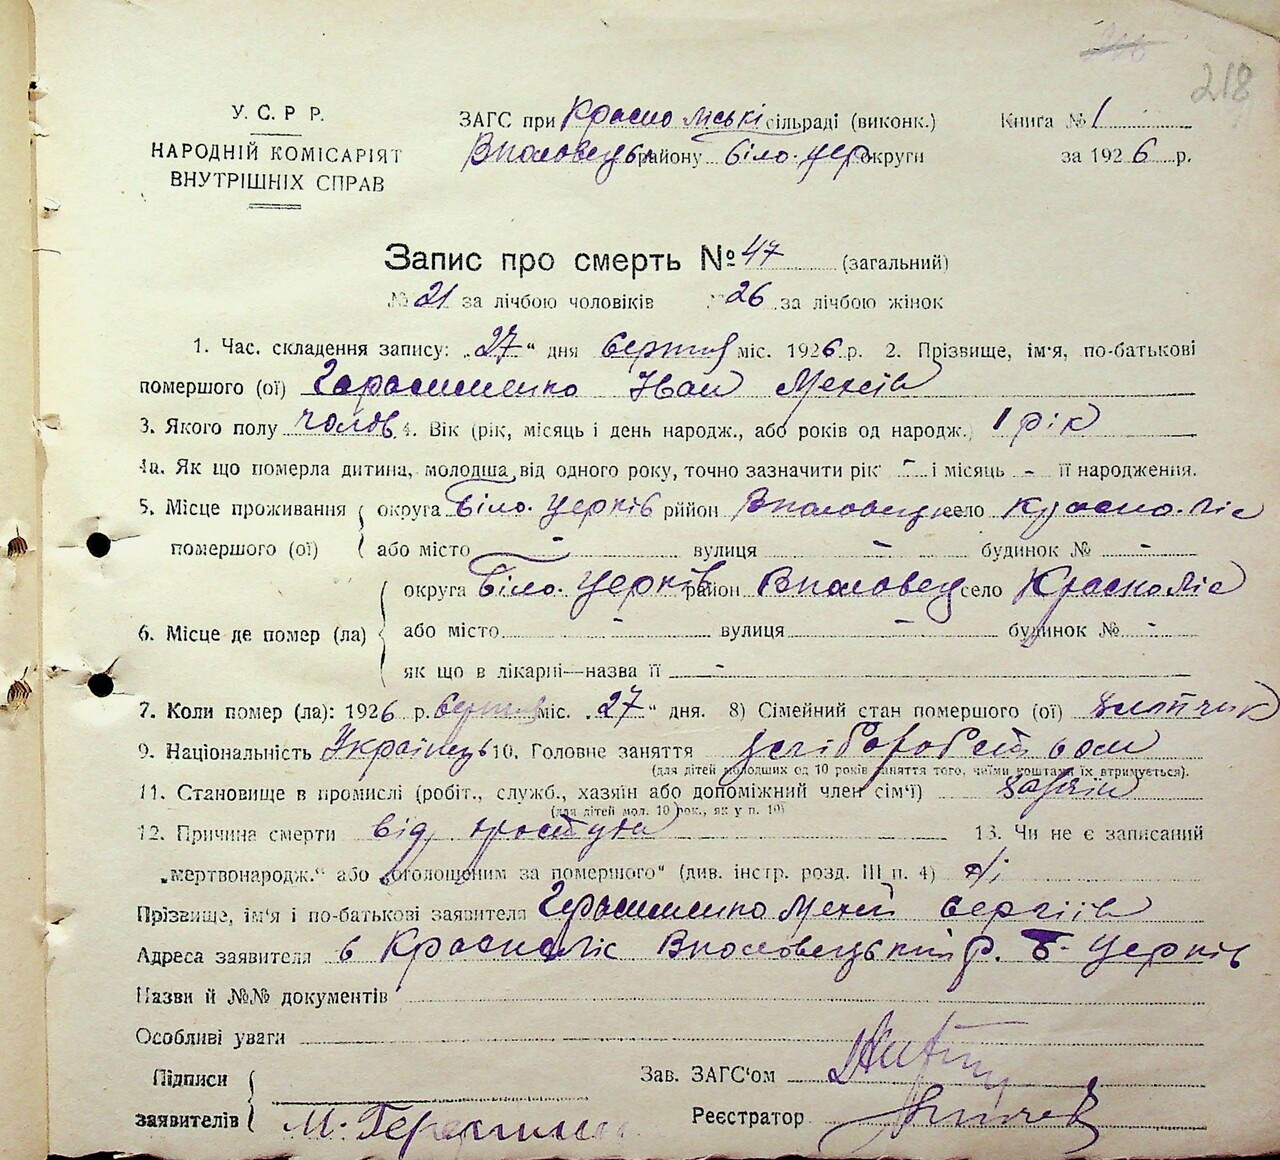 218
У.С.Р.Р.
НАРОДНІЙ КОМІСАРІЯТ
ВНУТРІШНІХ СПРАВ
ЗАГС при Красно ліській сільраді (виконк.)
району Біло. Цер округи
Книга № 1
за 1926 р.
Запис про смерть № 47 (загальний)
№ 21 за лічбою чоловіків № 26 за лічбою жінок
1. Час. складення запису: „27“ дня серпня міс. 1926 р. 2. Прізвище, ім'я, по-батькові
помершого (ої) Герасименко Іван
3. Якого полу чолов 4. Вік (рік, місяць і день народж., або років од народж.) 1 рік
4а. Як що померла дитина, молодша від одного року, точно зазначити рік - і місяць - її народження.
5. Місце проживання округа Біло. Церків рийон село Красноліс
помершого (ої) або місто - вулиця - будинок № -
округа Біло. Церків район село Красноліс
6. Місце де помер (ла) або місто - вулиця - будинок № -
як що в лікарні—назва її -
7. Коли помер (ла): 1926 р. серпня міс. „27“ дня. 8) Сімейний стан помершого (ої)
9. Національність Українець 10. Головне заняття
(для дітей молодших од 10 років заняття того, чиїми коштами їх втримується).
11. Становище в промислі (робіт., служб., хазяїн або допоміжний член сім'ї)
(для дітей мол. 10 рок., як у п. 10)
12. Причина смерти від простуди 13. Чи не є записаний
„мертвонародж.“ або „оголошеним за помершого“ (див. інстр. розд. III п. 4) ні
Прізвище, ім'я і по-батькові заявителя Герасименко
Адреса заявителя в Красноліс р. Б-Церків
Назви й №№ документів
Особливі уваги
Підписи
заявителів М. Герасимен
Зав. ЗАГС'ом
Реєстратор